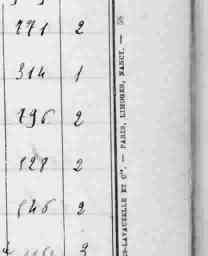 771 2
314 1
796 2
128 2
646 2
3
S-LAVAUZELLE ET Cie. — PARIS, LIMOGES, NANCY. —